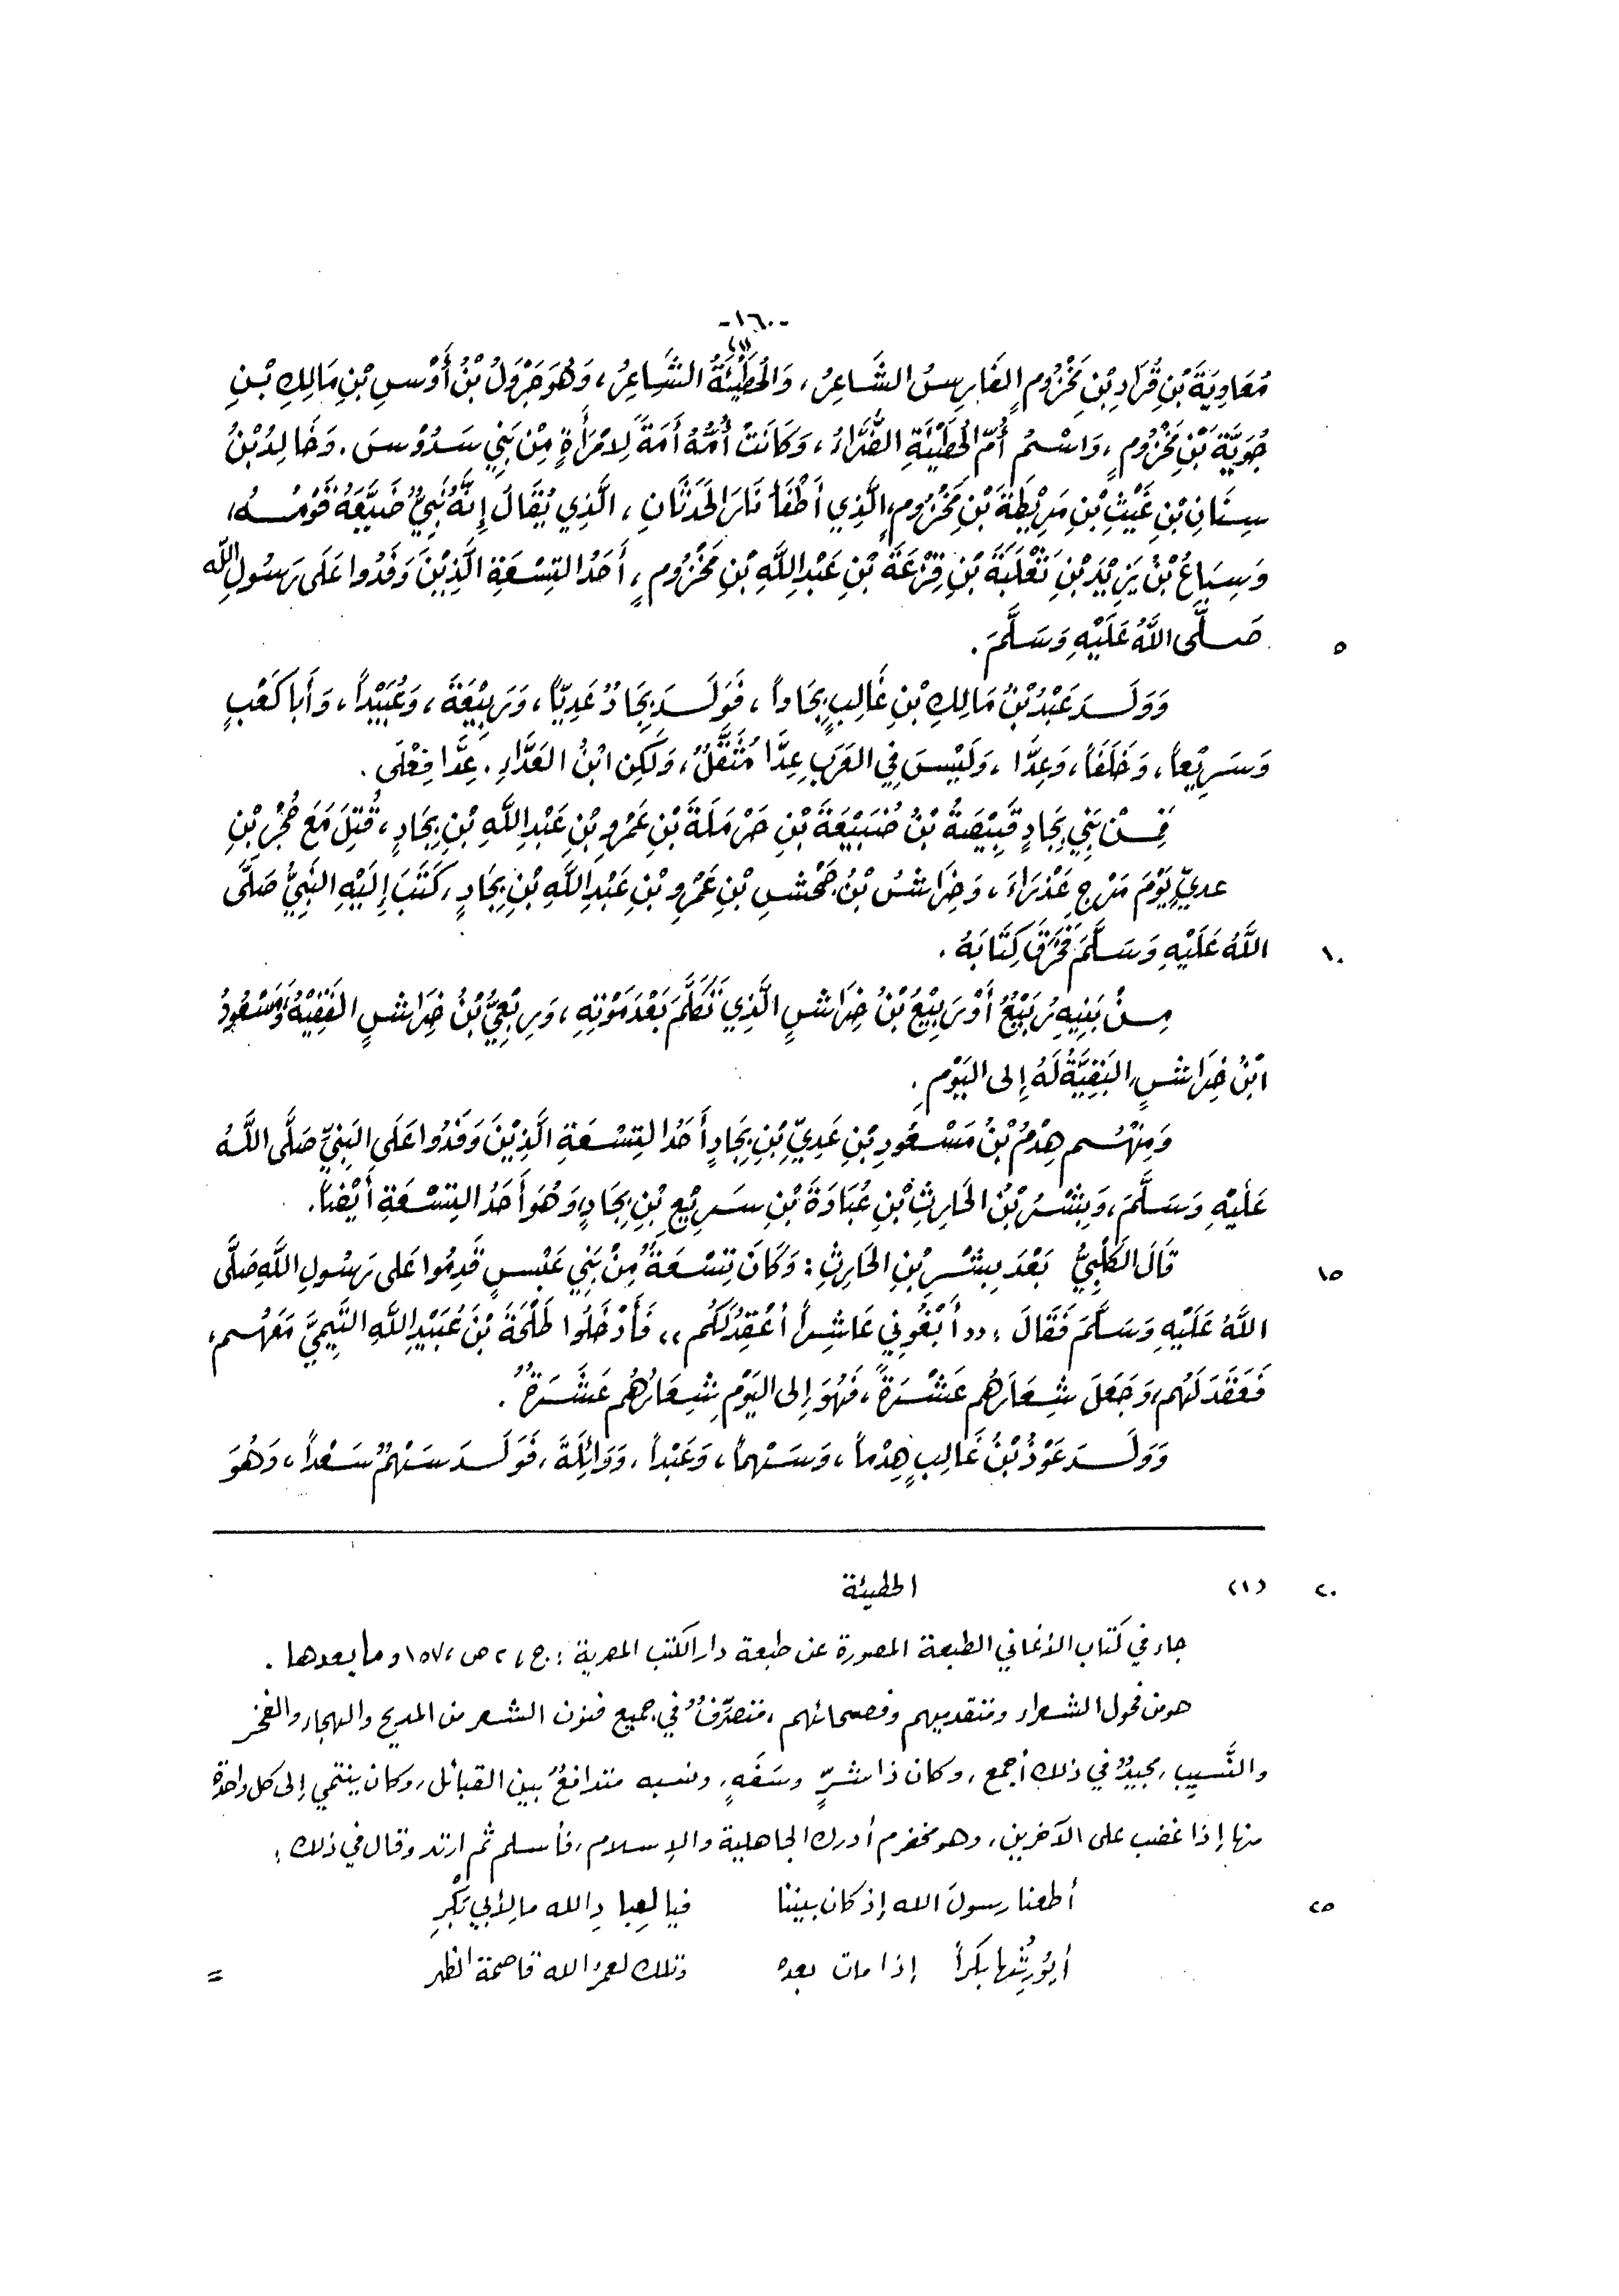 -١٦٠-
مُعَاوِيَةَ بْنِ قُرَادِ بْنِ مَخْزُومٍ الفَارِسُ الشَّاعِرُ، وَالحُطَيْئَةُ (١) الشَّاعِرُ، وَهُوَ جَرْوَلُ بْنُ أَوْسِ بْنِ مَالِكِ بْنِ
جُوَيَّةَ بْنِ مَخْزُومٍ، وَاسْمُ أُمِّ الحُطَيْئَةِ الضَّرَّاءُ، وَكَانَتْ أُمُّهُ أَمَةً لِامْرَأَةٍ مِنْ بَنِي سَدُوْسَ. وَخَالِدُ بْنُ
سِنَانِ بْنِ غَيْثِ بْنِ مَرِيْطَةَ بْنِ مَخْزُومٍ، الَّذِي أَطْفَأَ نَارَ الحَدَثَانِ، الَّذِي يُقَالَ إِنَّهُ نَبِيٌّ ضَيَّعَهُ قَوْمُهُ،
وَسِبَاعُ بْنُ يَزِيْدَ بْنِ ثَعْلَبَةَ بْنِ قِزْعَةَ بْنِ عَبْدِ اللَّهِ بْنِ مَخْزُومٍ، أَحَدُ التِسْعَةِ الَّذِيْنَ وَفَدُوا عَلَى رَسُولِ اللَّه
٥ صَلَّى اللَّهُ عَلَيْهِ وَسَلَّمَ.
وَوَلَدَ عَبْدُ بْنُ مَالِكِ بْنِ غَالِبٍ بِجَاداً، فَوَلَدَ بِجَادٌ عَدِيّاً، وَرَبِيْعَةَ، وَعُبَيْداً، وَأَبَا كَعْبٍ
وَسَرِيْعاً، وَخَلَفاً، وَعِدَّا، وَلَيْسَ فِي العَرَبِ عِدَّا مُثَقَّلٌ، وَلَكِن ابْنُ العَدَّاءِ. عِدَّا فِعْلَى.
فَمِنْ بَنِي بِجَادٍ قَبِيْصَةُ بْنُ ضُبَيْعَةَ بْنِ حَرْمَلَةَ بْنِ عَمْرِو بْنِ عَبْدِ اللَّهِ بْنِ بِجَادٍ، قُتِلَ مَعَ حُجْرِ بْنِ
عديٍّ يَوْمَ مَرْجِ عَذْرَاءَ، وَخِرَاشُ بْنُ جَحْشِ بْنِ عَمْرِو بْنِ عَبْدِ اللَّهِ بْنِ بِجَادٍ، كَتَبَ إِلَيْهِ النَبِيُّ صَلَّى
١٠ اللَّهُ عَلَيْهِ وَسَلَّمَ فَخَرَّقَ كِتَابَهُ.
مِنْ بَنِيهِ رُبَيْعُ أَوْ رَبِيْعُ بْنُ خِرَاشٍ الَّذِي تَكَلَّمَ بَعْدَ مَوْتِهِ، وَرِبْعِيُّ بْنُ خِرَاشٍ الفَقِيْهُ، وَمَسْعُودُ
ابْنُ خِرَاشٍ، البَقِيَّةُ لَهُ إِلى اليَوْمِ.
وَمِنْهُم هِدْمُ بْنُ مَسْعُودِ بْنِ عَدِيِّ بْنِ بِجَادٍ أَحَدُ التِسْعَةِ الَّذِيْنَ وَفَدُوا عَلَى النَبِيِّ صَلَّى اللَّهُ
عَلَيْهِ وَسَلَّمَ، وَبِشْرُ بْنُ الحَارِثِ بْنِ عُبَادَةَ بْنِ سَرِيْعِ بْنِ بِجَادٍ، وَهُوَ أَحَدُ التِسْعَةِ أَيْضاً.
١٥ قَالَ الكَلْبِيُّ بَعْدَ بِشْرِ بْنِ الحَارِثِ: وَكَانَ تِسْعَةٌ مِنْ بَنِي عَبْسٍ قَدِمُوا عَلى رَسُولِ اللَّهِ صَلَّى
اللَّهُ عَلَيْهِ وَسَلَّمَ فَقَالَ: ،،أَبْغُونِي عَاشِراً أعْقِدُ لَكُم،، فَأَدْخَلُوا طَلْحَةَ بْنَ عُبَيْدِ اللَّهِ التَّيْمِيَّ مَعَهُم،
فَعَقَدَ لَهُم، وَجَعَلَ شِعَارَهُم عَشْرَةً، فَهُوَ إِلى اليَوْمِ شِعَارُهُم عَشَرَةٌ.
وَوَلَدَ عَوْذُ بْنُ غَالِبٍ هِدْماً، وَسَهْماً، وَعَبْداً، وَوَائِلَةَ، فَوَلَدَ سَهْمٌ سَعْداً، وَهُوَ
٢٠ (١) الحطيئة
جاء في كتاب الأغاني الطبعة المصورة عن طبعة دار الكتب المصرية: ج، ٢ ص، ١٥٧ وما بعدها.
هو من فحول الشعراء ومتقدميهم وفصحائهم، متصرّفٌ في جميع فنون الشعر من المديح والهجاء والفخر
والنَّسيب، مجيدٌ في ذلك أجمع، وكان ذا شرٍّ وسَفَهٍ، ونسبه متدافعٌ بين القبائل، وكان ينتمي إلى كل واحدة
منها إذا غضب على الآخرين، وهو مخضرم أدرك الجاهلية والإسلام، فأسلم ثم ارتد وقال في ذلك:
٢٥ أطعنا رسولَ الله إذ كان بيننا فيا لَعِبادِ الله ما لأبي بَكْرِ
أيُوْرِثُها بَكراً إذا مات بعده وتلك لعمرُ الله قاصمة الظهر
=